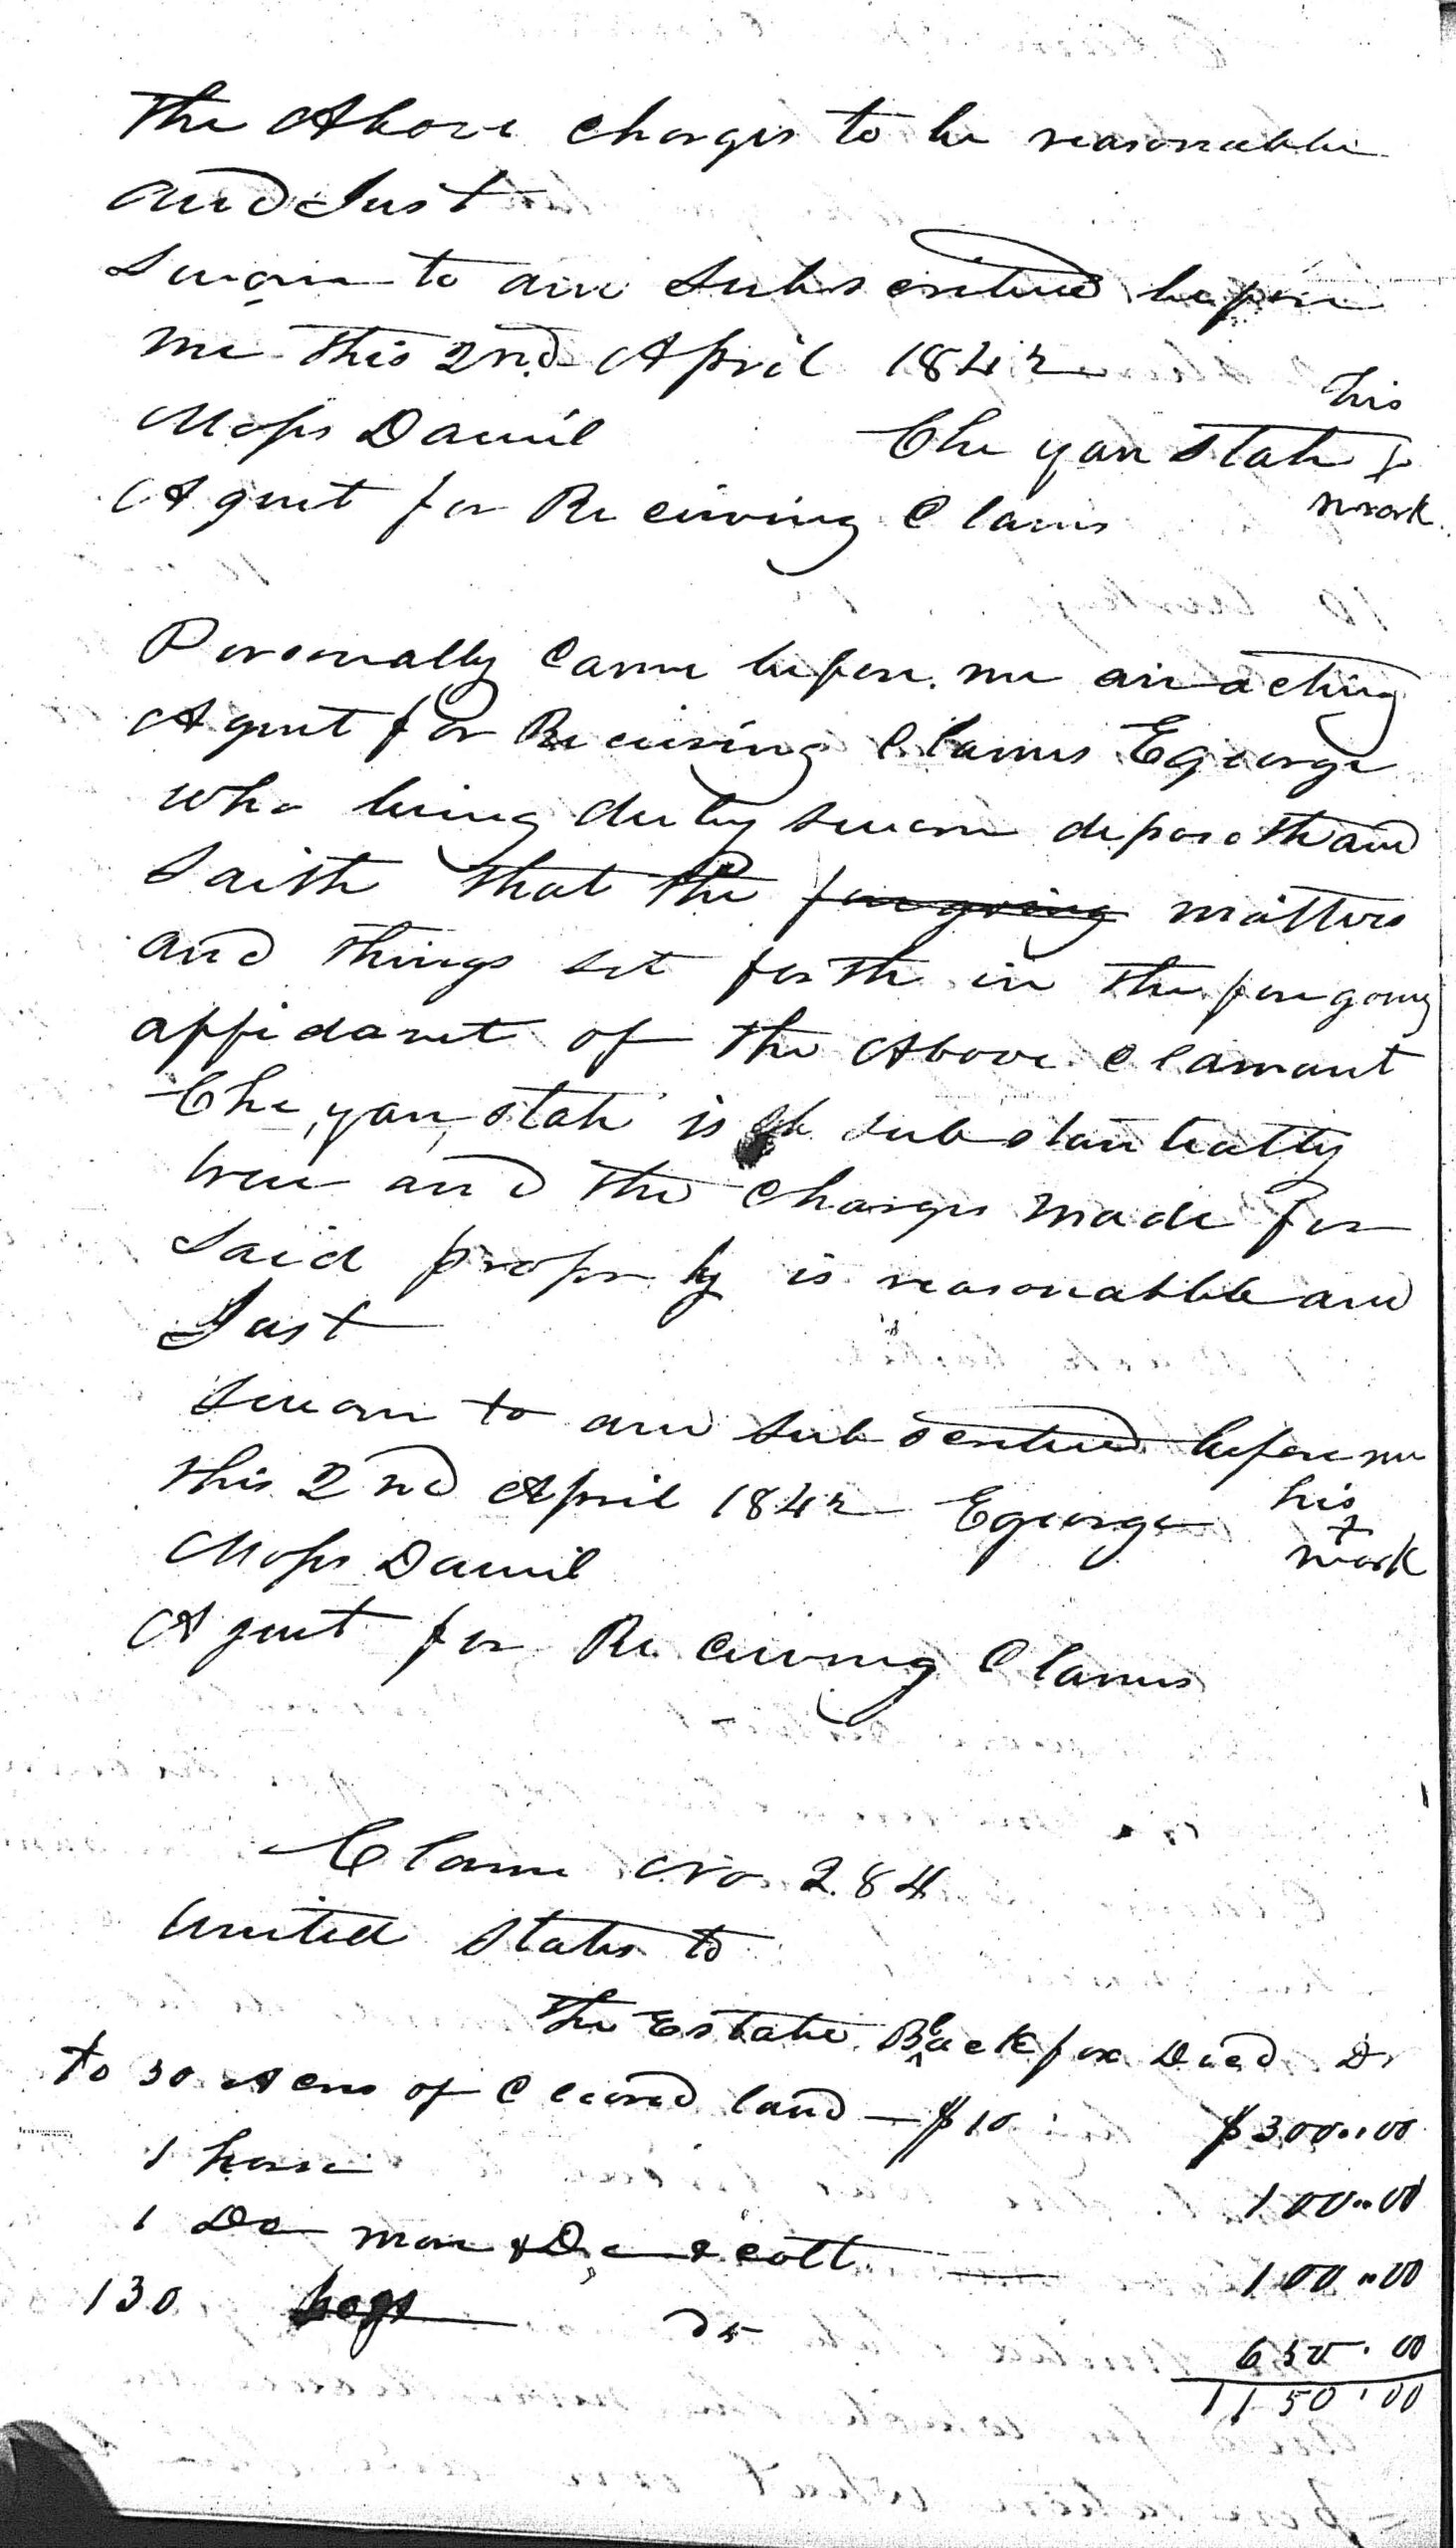 The Above charges to be reasonable
and Just
Sworn to and Subscribed before
me this 2nd April 1842
his
Moses Daniel Che yan stah x
mark
Agent for Receiving Claims
Personally came before me an acting
Agent for Receiving Claims Egeorge
who being duly sworn deposeth and
saith that the foregoing matters
and things set forth in the foregoing
affidavit of the Above Clamant
Che, yan, stah is substantially
true and the Charges made for
said property is reasonable and
Just
Sworn to and Subscribed before me
this 2nd April 1842 Egeorge his
x
Moses Daniel mark
Agent for Receiving Claims
Claim No. 284
United States to
The Estate Black fox Decd Dr
To 30 Acres of Cleared land — $10 $300..00
1 horse 100..00
1 Do mare & colt — 100..00
130 hogs 5 650.00
1150.00